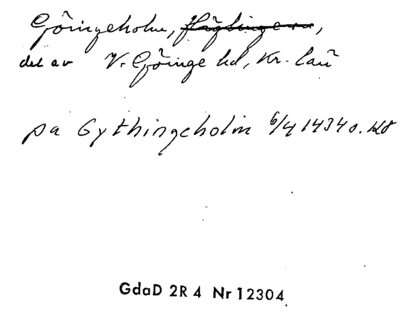 Göingeholm, Häglinge sn,
del av V. Göinge hd, Kr. län
pa Gythingeholm 6/4 1434 o. Kb
GdaD 2R 4 Nr 12304